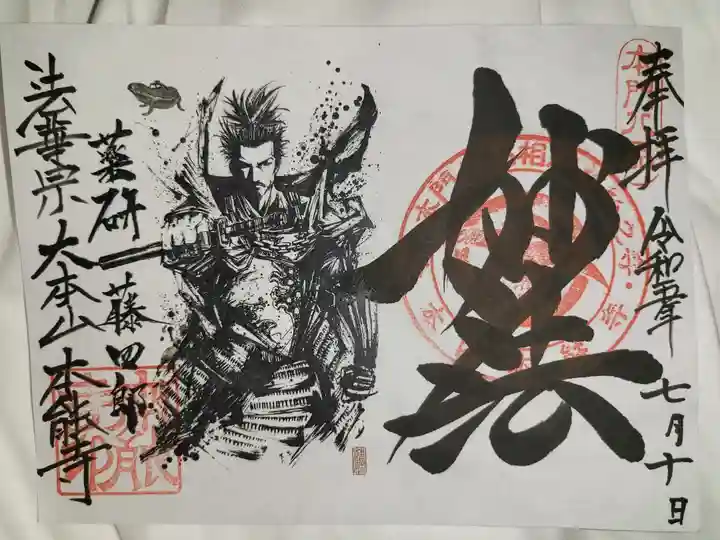 奉拝
令和五年
七月十日
妙法
薬研藤四郎
法華宗大本山本能寺